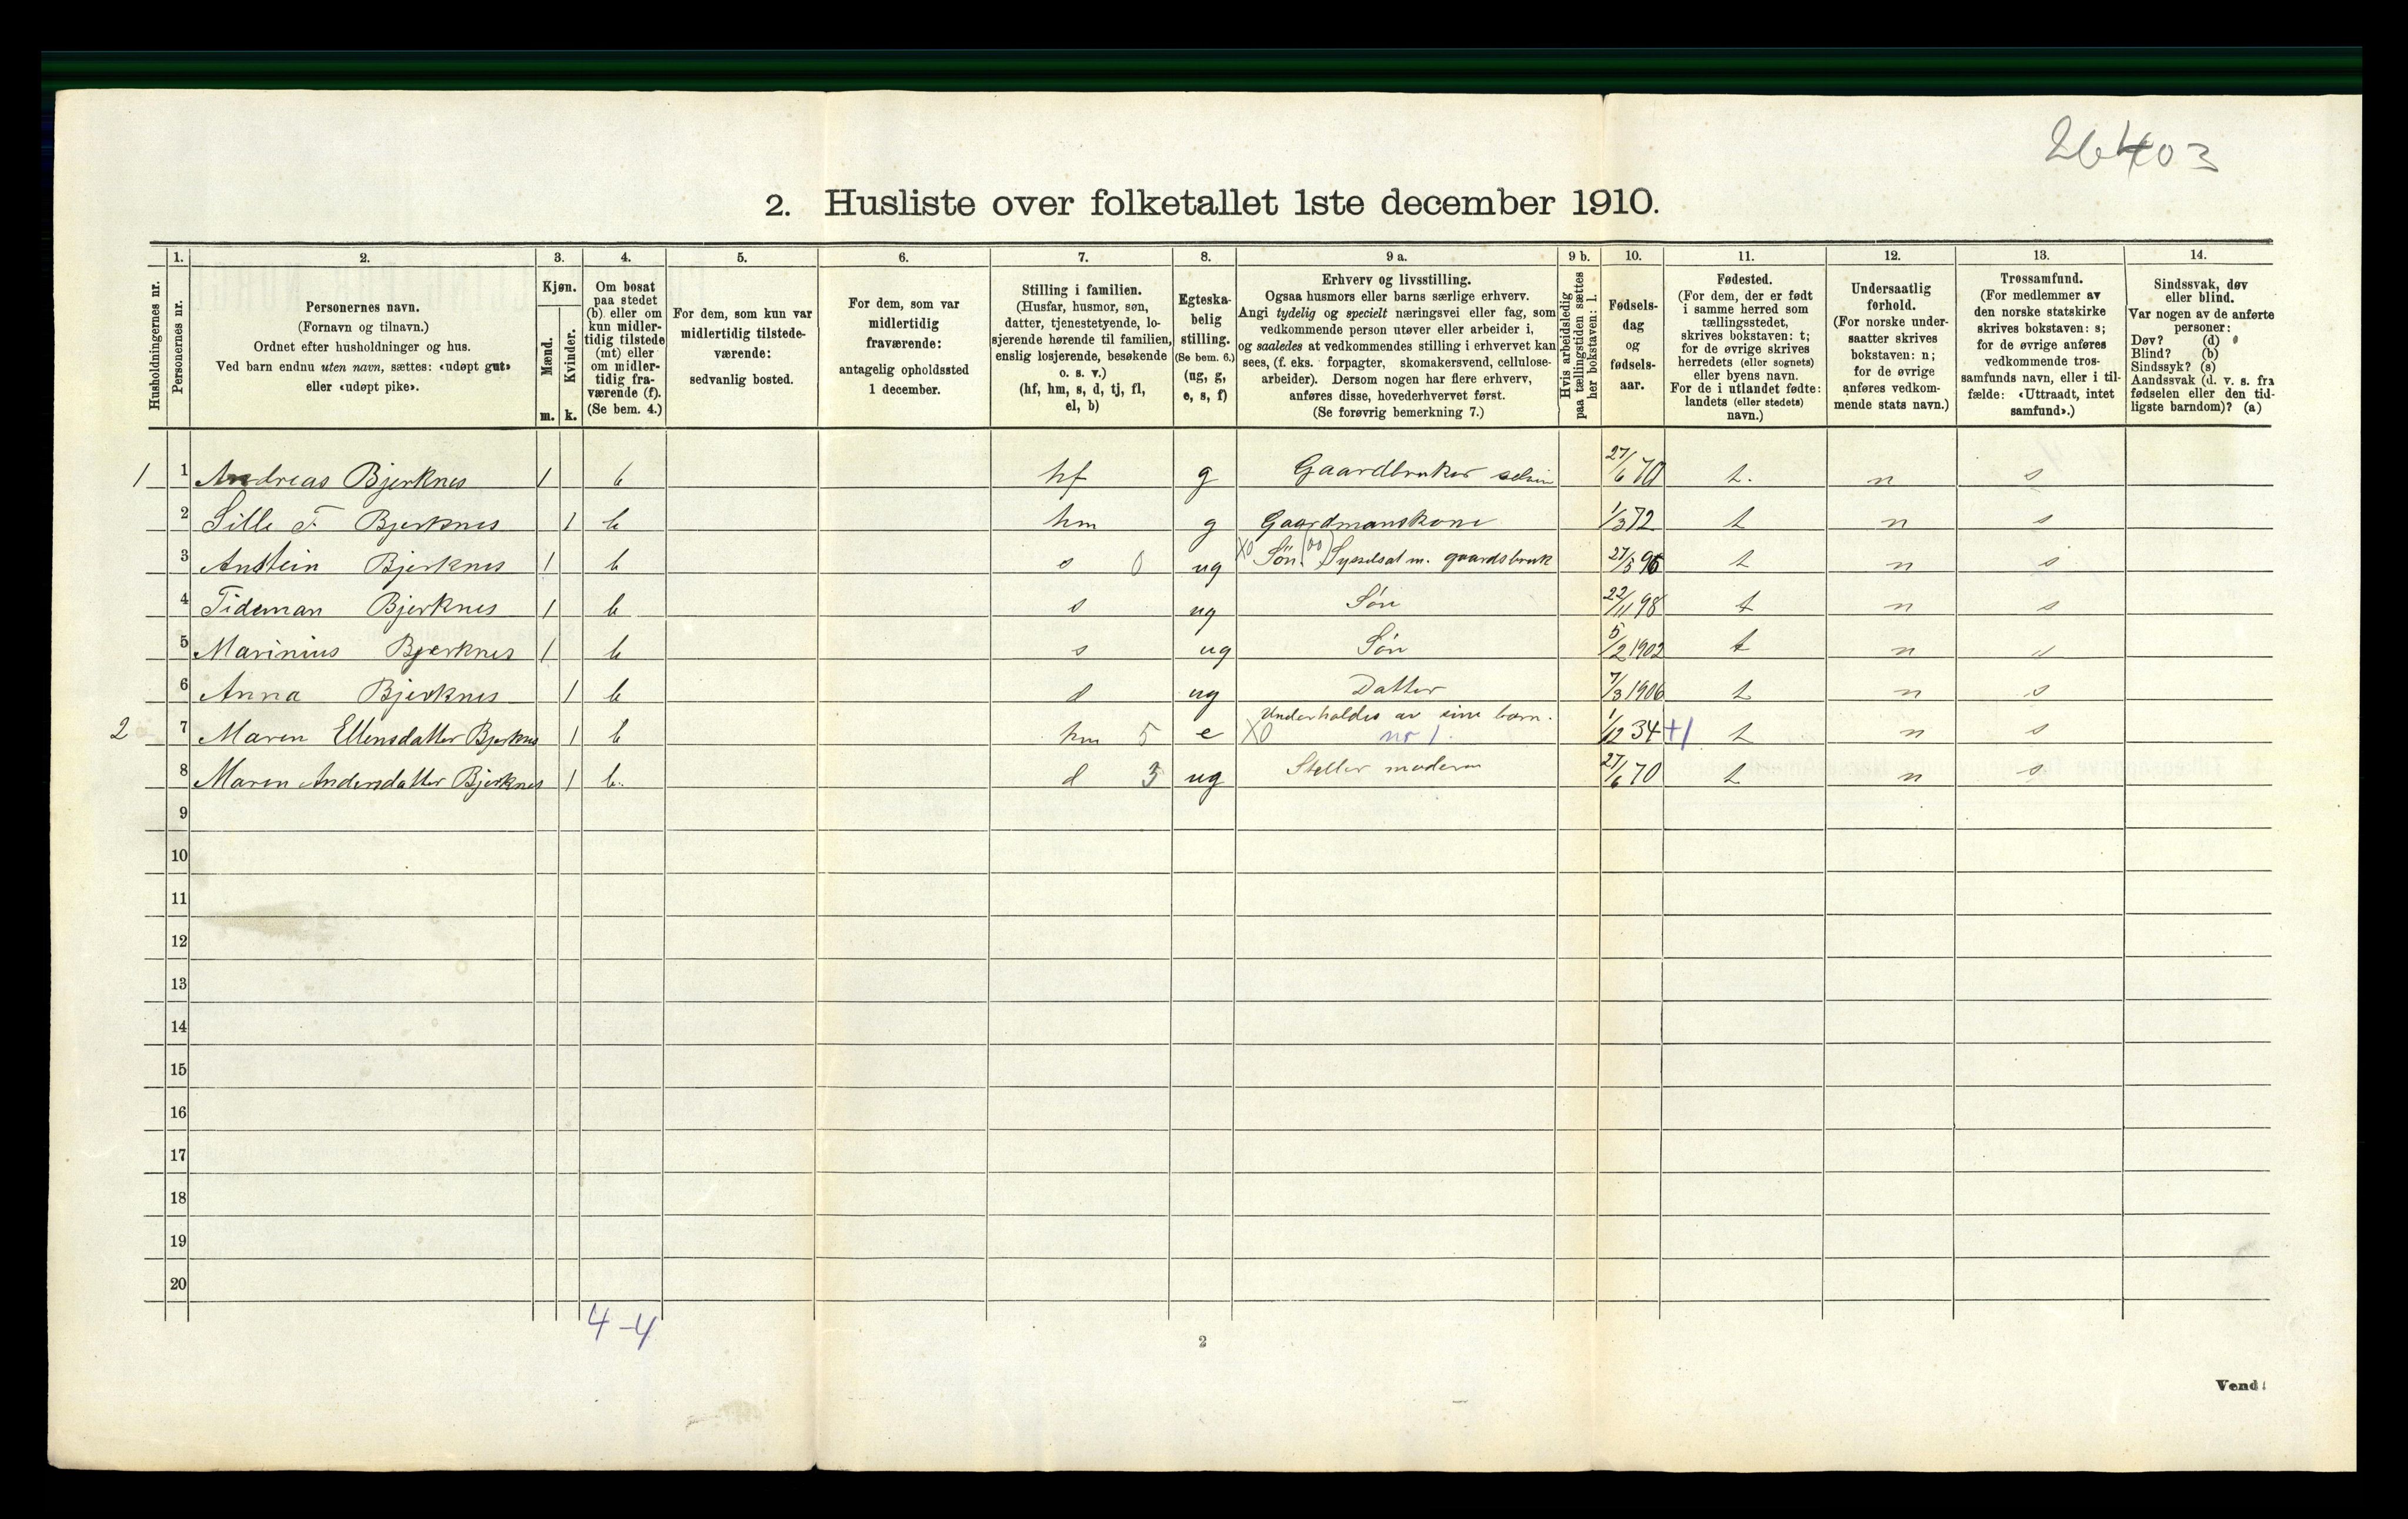 26403
2. Husliste over folketallet 1ste december 1910.
Husholdningernes nr.
1. Personernes nr.
2. Personernes navn. (Fornavn og tilnavn.) Ordnet efter husholdninger og hus. Ved barn endnu uten navn, sættes: «udøpt gut» eller «udøpt pike».
3. Kjøn. Mænd. m. Kvinder. k.
4. Om bosat paa stedet (b) eller om kun midlertidig tilstede (mt) eller om midlertidig fraværende (f). (Se bem. 4.)
5. For dem, som kun var midlertidig tilstedeværende: sedvanlig bosted.
6. For dem, som var midlertidig fraværende: antagelig opholdssted 1 december.
7. Stilling i familien. (Husfar, husmor, søn, datter, tjenestetyende, losjerende hørende til familien, enslig losjerende, besøkende o. s. v.) (hf, hm, s, d, tj, fl, el, b)
8. Egteskabelig stilling. (Se bem. 6.) (ug, g, e, s, f)
9 a. Erhverv og livsstilling. Ogsaa husmors eller barns særlige erhverv. Angi tydelig og specielt næringsvei eller fag, som vedkommende person utøver eller arbeider i, og saaledes at vedkommendes stilling i erhvervet kan sees, (f. eks. forpagter, skomakersvend, cellulosearbeider). Dersom nogen har flere erhverv, anføres disse, hovederhvervet først. (Se forøvrig bemerkning 7.)
9 b. Hvis arbeidsledig paa tællingstiden sættes her bokstaven: l.
10. Fødselsdag og fødselsaar.
11. Fødested. (For dem, der er født i samme herred som tællingsstedet, skrives bokstaven: t; for de øvrige skrives herredets (eller sognets) eller byens navn. For de i utlandet fødte: landets (eller stedets) navn.)
12. Undersaatlig forhold. (For norske undersaatter skrives bokstaven: n; for de øvrige anføres vedkommende stats navn.)
13. Trossamfund. (For medlemmer av den norske statskirke skrives bokstaven: s; for de øvrige anføres vedkommende trossamfunds navn, eller i tilfælde: «Uttraadt, intet samfund».)
14. Sindssvak, døv eller blind. Var nogen av de anførte personer: Døv? (d) Blind? (b) Sindssyk? (s) Aandssvak (d. v. s. fra fødselen eller den tidligste barndom)? (a)
1 1 Andreas Bjerknes 1 b hf g Gaardbruker selvei 27/6 70 t. n s
2 Sille F. Bjerknes 1 b hm g Gaardmanskone 1/3 72 t n s
3 Anstein Bjerknes 1 b s 0 ug X0 Søn. (00) Sysselsat m. gaardsbruk 27/3 96 t n s
4 Tideman Bjerknes 1 b s ug Søn 22/11 98 t n s
5 Marinius Bjerknes 1 b s ug Søn 5/2 1902 t n s
6 Anna Bjerknes 1 b d ug Datter 7/3 1906 t n s
2 7 Maren Ellensdatter Bjerknes 1 b hm 5 e X0 Underholdes av sine barn. nr 1. 1/12 34 +1 t n s
8 Maren Andersdatter Bjerknes 1 b. d 3 ug Steller moderen 27/6 70 t n s
9
10
11
12
13
14
15
16
17
18
19
20
4 - 4
2
Vend!